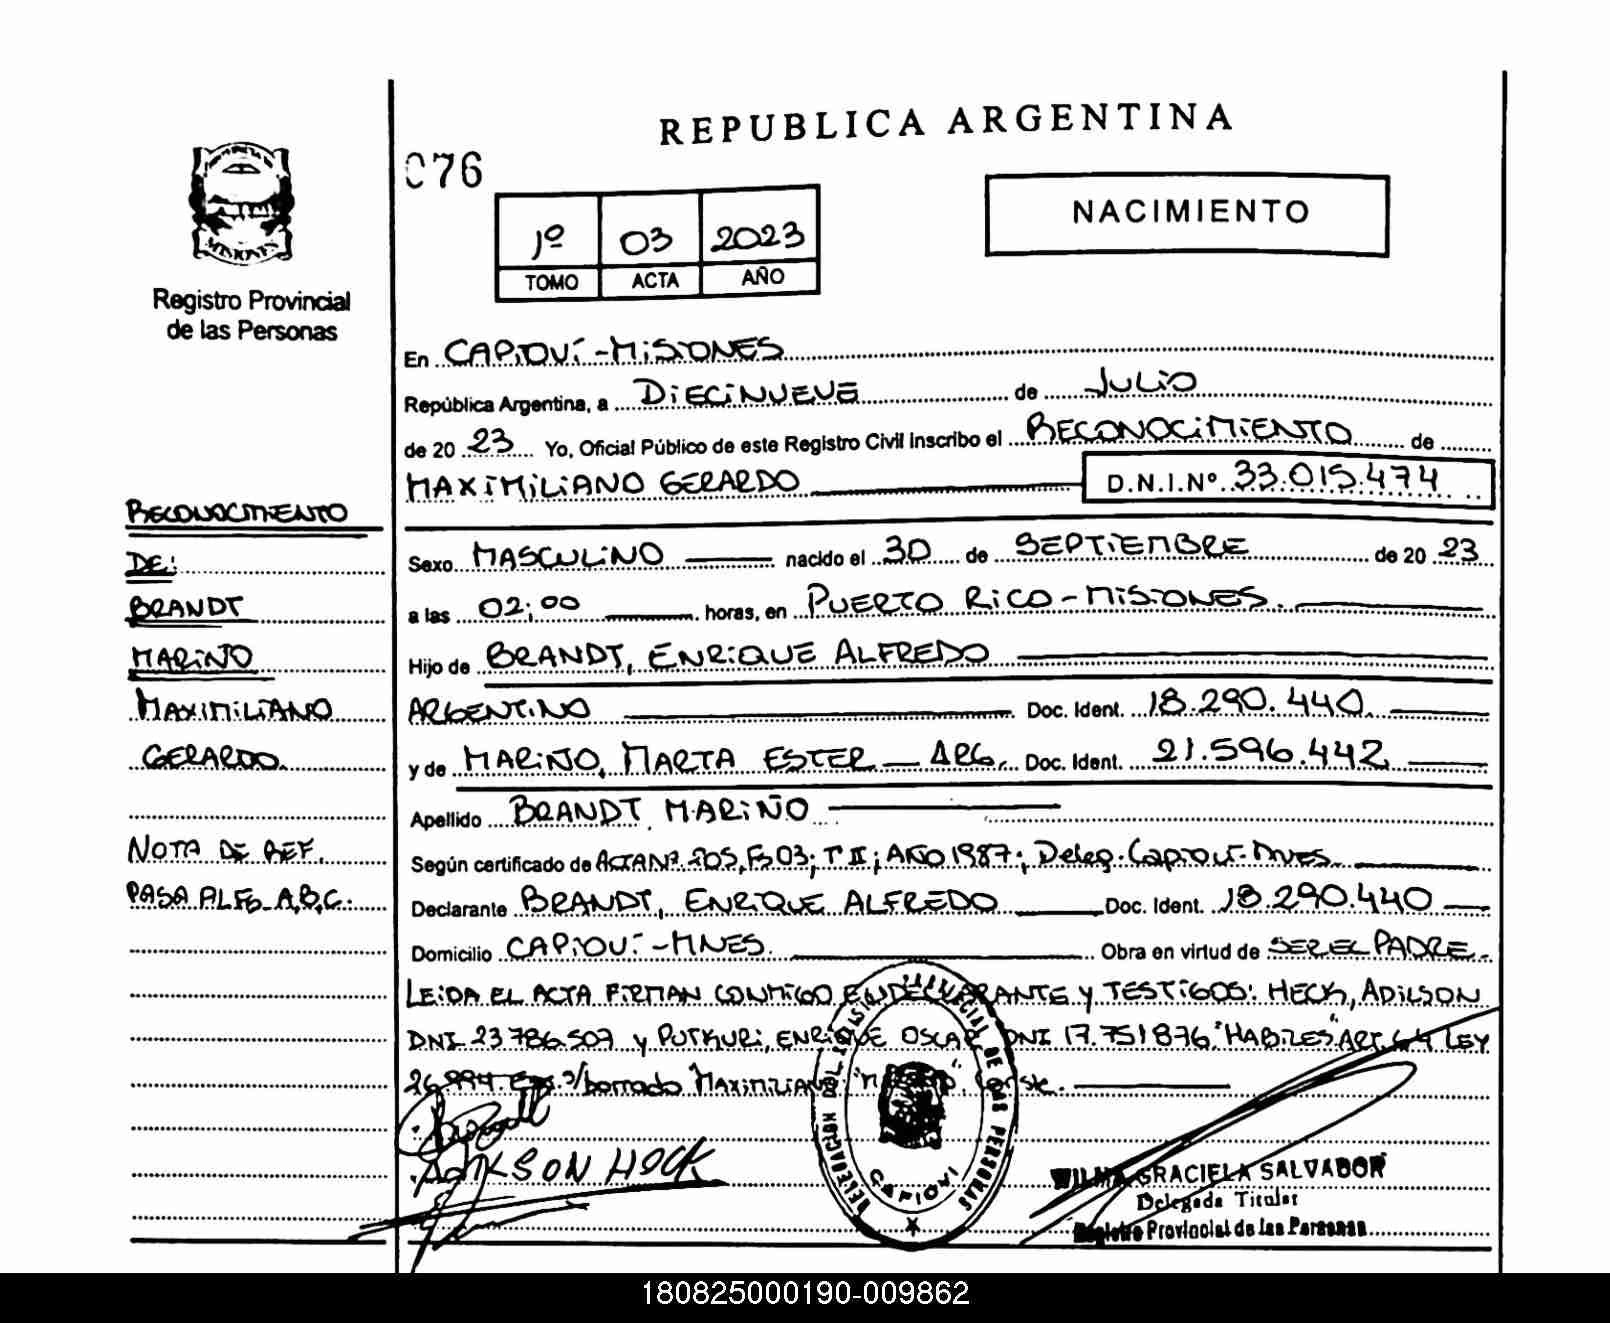 REPUBLICA ARGENTINA
076
MISIONES
Registro Provincial
de las Personas
1º 03 2023
TOMO ACTA AÑO
NACIMIENTO
En CAPIOVÍ - MISIONES
República Argentina, a DIECINUEVE de JULIO
de 20 23 Yo, Oficial Público de este Registro Civil inscribo el RECONOCIMIENTO de
MAXIMILIANO GERARDO D.N.I.Nº 33.015.474
Sexo MASCULINO nacido el 30 de SEPTIEMBRE de 20 23
a las 02:00 horas, en PUERTO RICO - MISIONES.
Hijo de BRANDT, ENRIQUE ALFREDO
ARGENTINO Doc. Ident. 18.290.440.
y de MARIÑO, MARTA ESTER - ARG. Doc. Ident. 21.596.442
Apellido BRANDT MARIÑO
Según certificado de ACTA Nº 205, Fº 03; Tº II; AÑO 1987; Deleg. Capioví - Mnes.
Declarante BRANDT, ENRIQUE ALFREDO Doc. Ident. 18.290.440
Domicilio CAPIOVÍ - MNES. Obra en virtud de SER EL PADRE.
LEIDA EL ACTA FIRMAN CONMIGO EL DECLARANTE Y TESTIGOS: HECK, ADILSON
DNI 23 786.507 y PUTKURI, ENRIQUE OSCAR DNI 17.751876. "HABILES" ART. 64 LEY
26.994. s/borrado MAXIMILIANO
RECONOCIMIENTO
DE:
BRANDT
MARIÑO
MAXIMILIANO
GERARDO.
NOTA DE REF.
PASA AL Fº A,B,C.
HECK
DELEGACION DEL REGISTRO PROVINCIAL DE LAS PERSONAS
CAPIOVI
WILMA GRACIELA SALVADOR
Delegada Titular
Registro Provincial de las Personas
180825000190-009862